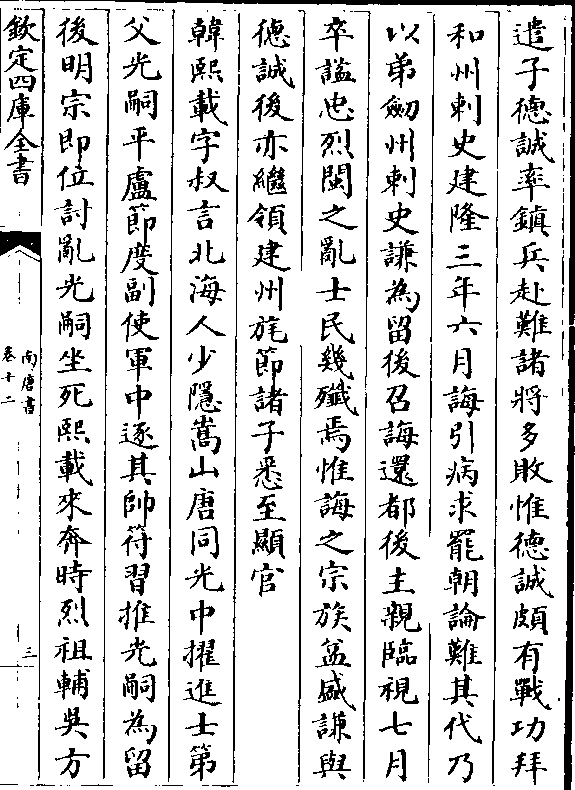 遣子德誠率鎮兵赴難諸將多敗惟德誠頗有戰功拜
和州刺史建隆三年六月誨引病求罷朝論難其代乃
以弟劒州刺史謙為留後召誨還都後主親臨視七月
卒諡忠烈閩之亂士民幾殱焉惟誨之宗族益盛謙與
德誠後亦繼領建州旄節諸子悉至顯官
韓熙載字叔言北海人少隱嵩山唐同光中擢進士第
父光嗣平盧節度副使軍中逐其帥符習推光嗣為留
後明宗即位討亂光嗣坐死熙載來奔時烈祖輔吳方
欽定四庫全書
南唐書
卷十二
三